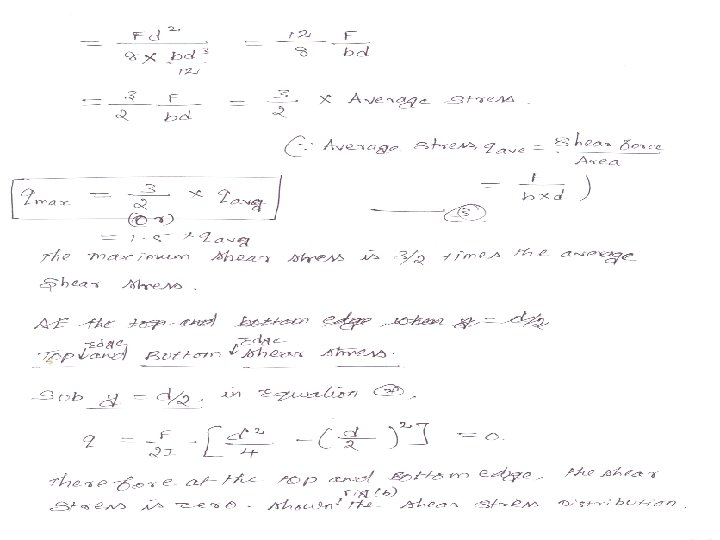 = Fd² / 8 × bd³/12 = 12/8 F/bd
= 3/2 F/bd = 3/2 × Average stress.
(∵ Average stress, q ave = Shear force / Area
= F / b×d )
q max = 3/2 × q avg
(or) ——— ⑤
= 1.5 × q avg
The maximum shear stress is 3/2 times the average
shear stress.
At the top and bottom edge when y = d/2
Top edge and Bottom Edge shear stress.
Sub y = d/2, in equation
q = F/2I [d²/4 - (d/2)²] = 0.
Therefore at the top and bottom edge, the shear
stress is zero. shown fig (b) the shear stress Distribution.